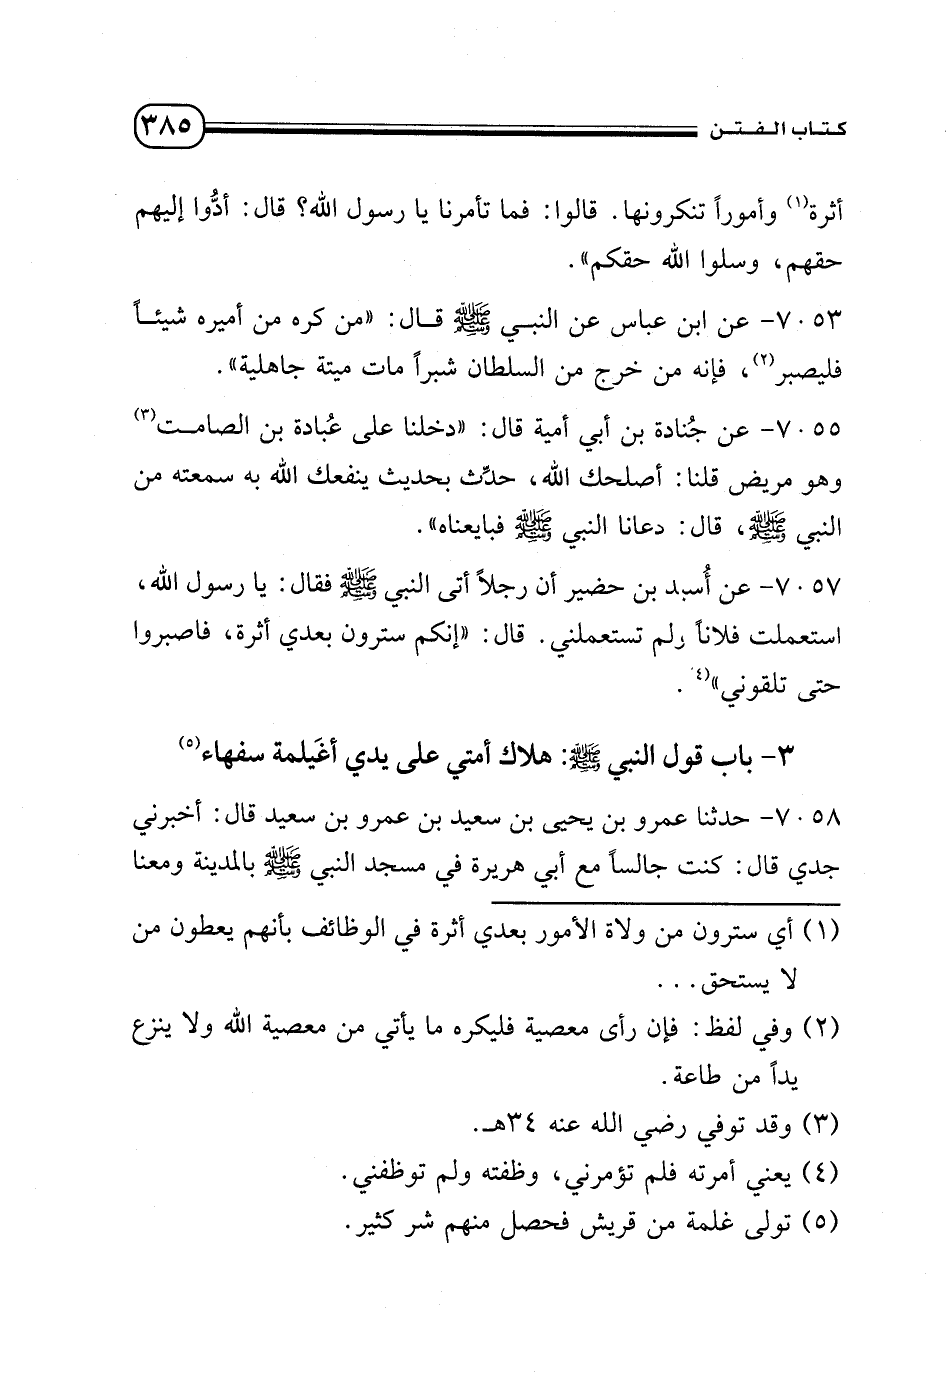 كتاب الفتن ٣٨٥
أثرة(١) وأموراً تنكرونها. قالوا: فما تأمرنا يا رسول الله؟ قال: أدُّوا إليهم
حقهم، وسلوا الله حقكم».
٧٠٥٣- عن ابن عباس عن النبي ﷺ قال: «من كره من أميره شيئاً
فليصبر(٢)، فإنه من خرج من السلطان شبراً مات ميتة جاهلية».
٧٠٥٥- عن جُنادة بن أبي أمية قال: «دخلنا على عُبادة بن الصامت(٣)
وهو مريض قلنا: أصلحك الله، حدِّث بحديث ينفعك الله به سمعته من
النبي ﷺ، قال: دعانا النبي ﷺ فبايعناه».
٧٠٥٧- عن أُسيد بن حضير أن رجلاً أتى النبي ﷺ فقال: يا رسول الله،
استعملت فلاناً ولم تستعملني. قال: «إنكم سترون بعدي أثرة، فاصبروا
حتى تلقوني»(٤).
٣- باب قول النبي ﷺ: هلاك أمتي على يدي أغَيلمة سفهاء(٥)
٧٠٥٨- حدثنا عمرو بن يحيى بن سعيد بن عمرو بن سعيد قال: أخبرني
جدي قال: كنت جالساً مع أبي هريرة في مسجد النبي ﷺ بالمدينة ومعنا
(١) أي سترون من ولاة الأمور بعدي أثرة في الوظائف بأنهم يعطون من
لا يستحق...
(٢) وفي لفظ: فإن رأى معصية فليكره ما يأتي من معصية الله ولا ينزع
يداً من طاعة.
(٣) وقد توفي رضي الله عنه ٣٤هـ.
(٤) يعني أمرته فلم تؤمرني، وظفته ولم توظفني.
(٥) تولى غلمة من قريش فحصل منهم شر كثير.